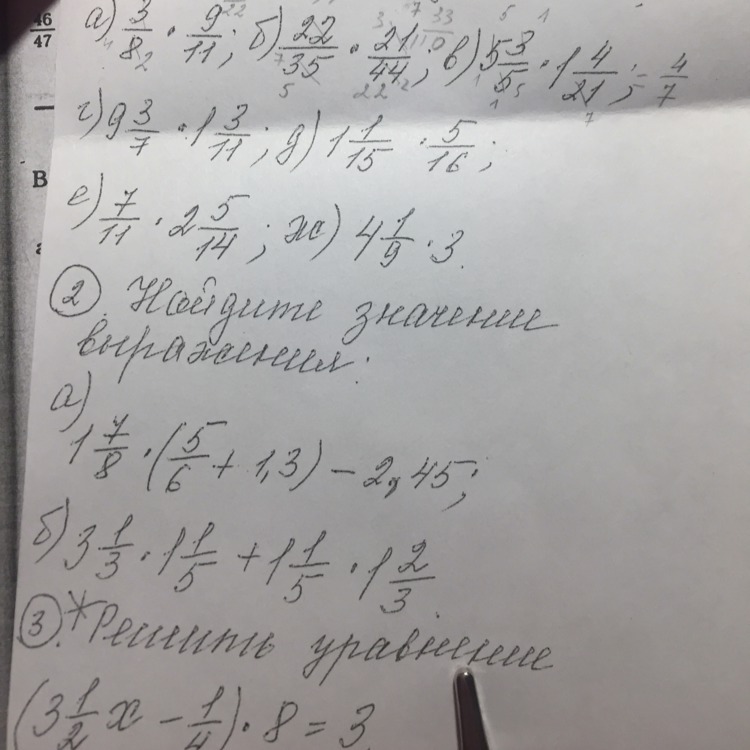 46/47
а) 3/8 · 9/11; б) 22/35 · 21/44; в) 5 3/5 · 1 4/21; = 4/7
г) 9 3/7 · 1 3/11; д) 1 1/15 · 5/16;
е) 7/11 · 2 5/14; ж) 4 1/9 · 3
В
2. Найдите значение
выражения:
а)
1 7/8 · (5/6 + 1,3) - 2,45;
б) 3 1/3 · 1 1/5 + 1 1/5 · 1 2/3.
3. *Решить уравнение
(3 1/2 x - 1/4) · 8 = 3